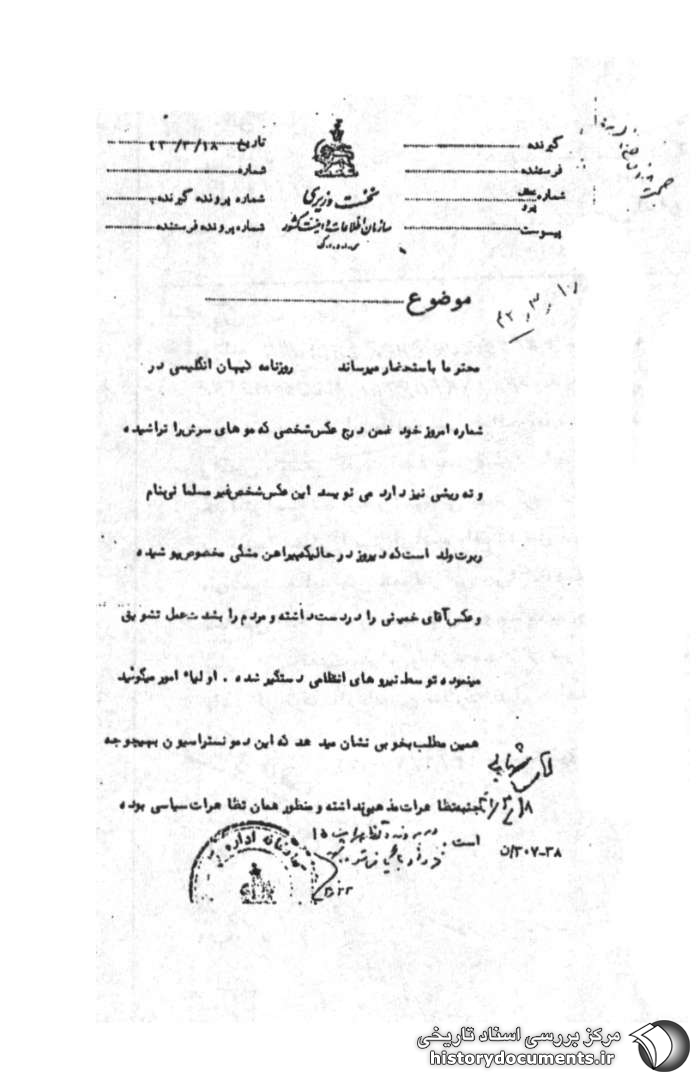 گیرنده
فرستنده
شماره
پیوست
نخست وزیری
سازمان اطلاعات و امنیت کشور
س.ا.و.ا.ک
تاریخ ۴۲/۳/۱۸
شماره
شماره پرونده گیرنده
شماره پرونده فرستنده
موضوع
۴۲،۳،۱۸
محترما باستحضار میرساند روزنامه کیهان انگلیسی در
شماره امروز خود ضمن درج عکس شخصی که موهای سرش را تراشیده
و ته ریشی نیز دارد می نویسد این عکس شخص غیر مسلمانی بنام
ربوت ولد است که دیروز در حالیکه پیراهن مشکی مخصوص پوشیده
و عکس آقای خمینی را در دست داشته و مردم را بشدت عمل تشویق
مینموده توسط نیروهای انتظامی دستگیر شده . اولیاء امور میگویند
همین مطلب بخوبی نشان میدهد که این دمونستراسیون بهیچوجه
جنبه تظاهرات مذهبی نداشته و منظور همان تظاهرات سیاسی بوده
است .
در پرونده تظاهرات ۱۵
۳۰۷-۳۸/ن
مرکز بررسی اسناد تاریخی
historydocuments.ir